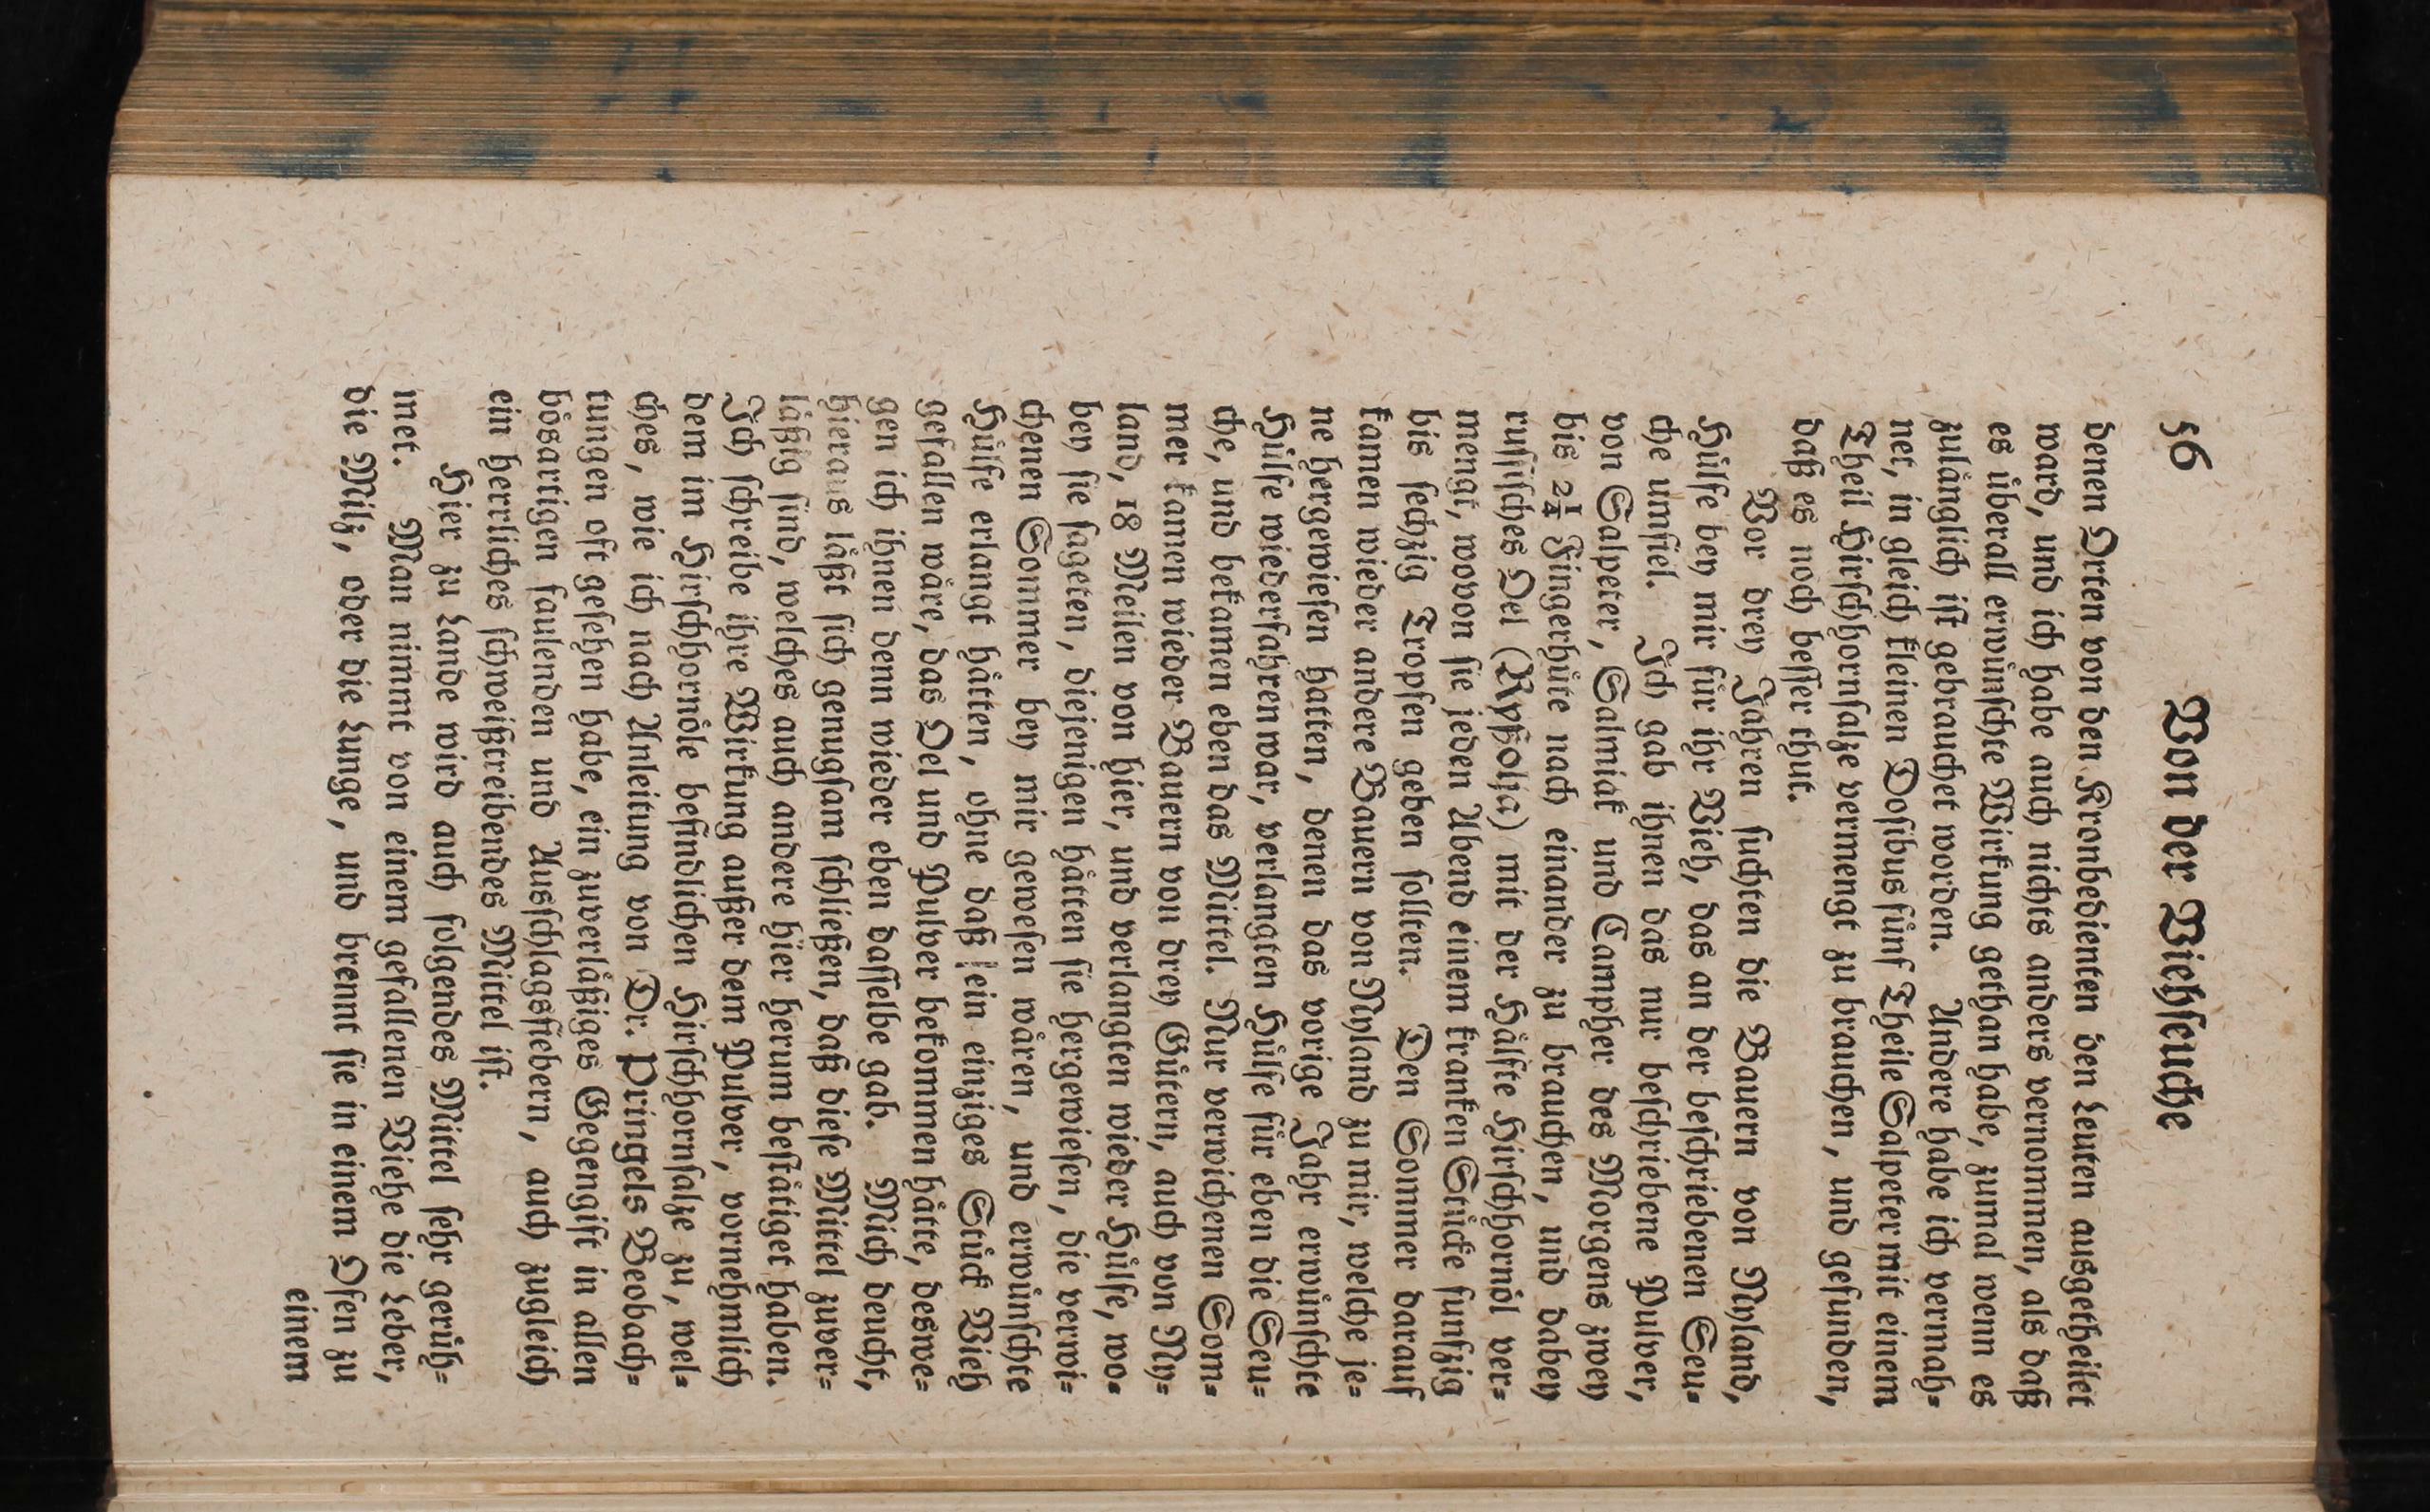 56 Von der Viehſeuche
denen Orten von den Kronbedienten den Leuten ausgetheilet
ward, und ich habe auch nichts anders vernommen, als daß
es überall erwünſchte Wirkung gethan habe, zumal wenn es
zulänglich iſt gebrauchet worden. Andere habe ich vermah-
net, in gleich kleinen Doſibus fünf Theile Salpeter mit einem
Theil Hirſchhornſalze vermengt zu brauchen, und gefunden,
daß es noch beſſer thut.
Vor drey Jahren ſuchten die Bauern von Nyland,
Hülfe bey mir für ihr Vieh, das an der beſchriebenen Seu-
che umfiel. Ich gab ihnen das nur beſchriebene Pulver,
von Salpeter, Salmiak und Campher des Morgens zwey
bis 2¼ Fingerhüte nach einander zu brauchen, und dabey
ruſſiſches Oel (Ryßolja) mit der Hälfte Hirſchhornöl ver-
mengt, wovon ſie jeden Abend einem kranken Stücke funfzig
bis ſechzig Tropfen geben ſollten. Den Sommer darauf
kamen wieder andere Bauern von Nyland zu mir, welche je-
ne hergewieſen hatten, denen das vorige Jahr erwünſchte
Hülfe wiederfahren war, verlangten Hülfe für eben die Seu-
che, und bekamen eben das Mittel. Nur verwichenen Som-
mer kamen wieder Bauern von drey Gütern, auch von Ny-
land, 18 Meilen von hier, und verlangten wieder Hülfe, wo-
bey ſie ſageten, diejenigen hätten ſie hergewieſen, die verwi-
chenen Sommer bey mir geweſen wären, und erwünſchte
Hülfe erlangt hätten, ohne daß ein einziges Stück Vieh
gefallen wäre, das Oel und Pulver bekommen hätte, deswe-
gen ich ihnen denn wieder eben daſſelbe gab. Mich deucht,
hieraus läßt ſich genugſam ſchließen, daß dieſe Mittel zuver-
läßig ſind, welches auch andere hier herum beſtätiget haben.
Ich ſchreibe ihre Wirkung außer dem Pulver, vornehmlich
dem im Hirſchhornöle befindlichen Hirſchhornſalze zu, wel-
ches, wie ich nach Anleitung von Dr. Pringels Beobach-
tungen oft geſehen habe, ein zuverläßiges Gegengift in allen
bösartigen faulenden und Ausſchlagsfiebern, auch zugleich
ein herrliches ſchweißtreibendes Mittel iſt.
Hier zu Lande wird auch folgendes Mittel ſehr gerüh-
met. Man nimmt von einem gefallenen Viehe die Leber,
die Milz, oder die Lunge, und brennt ſie in einem Ofen zu
einem